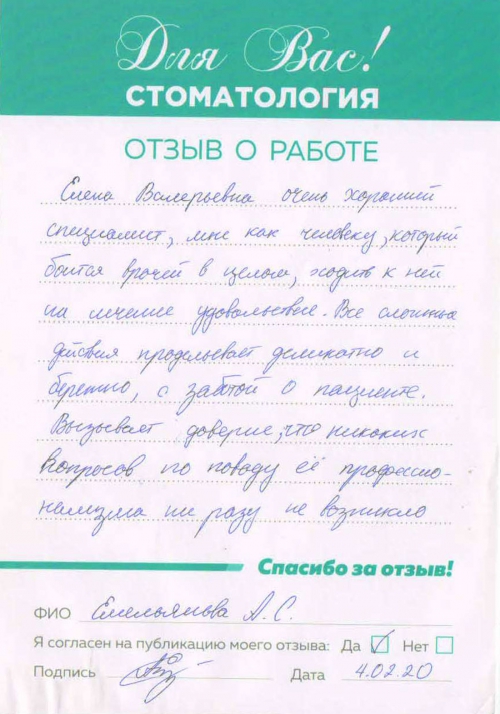 Для Вас!
СТОМАТОЛОГИЯ
ОТЗЫВ О РАБОТЕ
Елена Валерьевна очень хороший
специалист, мне как человеку, который
боится врачей в целом, ходить к ней
на лечение удовольствие. Все сложные
действия проделывает деликатно и
бережно, с заботой о пациенте.
Вызывает доверие, что никаких
вопросов по поводу её профессио-
нализма ни разу не возникло
Спасибо за отзыв!
ФИО Емельянова А. С.
Я согласен на публикацию моего отзыва: Да ☑ Нет ☐
Подпись Дата 4.02.20